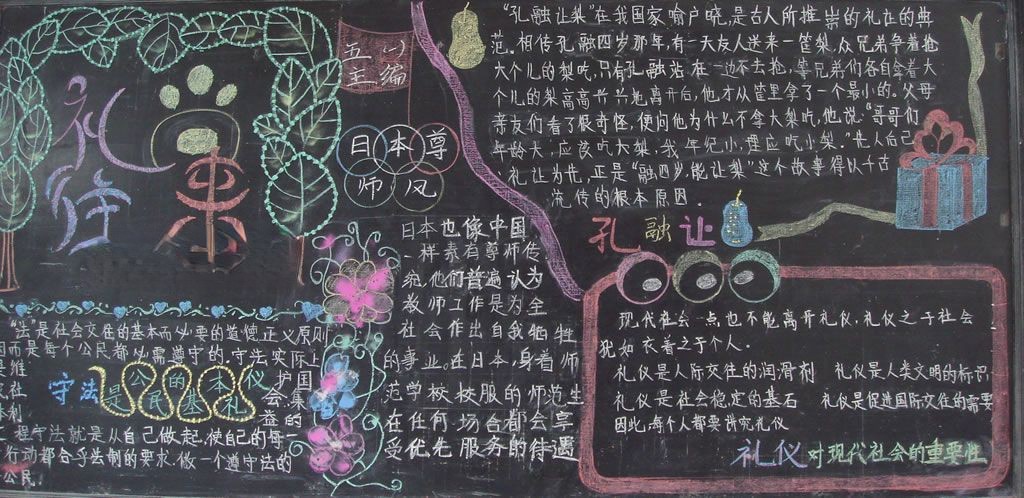 礼
仪
五(一)
王编
日本尊
师风
"孔融让梨"在我国家喻户晓,是古人所推崇的礼让的典
范。相传孔融四岁那年,有一天友人送来一筐梨,众兄弟争着抢
大个儿的梨吃,只有孔融站在一边不去抢,等兄弟们各自拿着大
个儿的梨高高兴兴地离开后,他才从筐里拿了一个最小的。父母
亲友们看了很奇怪,便问他为什么不拿大梨吃,他说:"哥哥们
年龄大,应该吃大梨,我年纪小,理应吃小梨。"先人后己
,礼让为先,正是"融四岁,能让梨"这个故事得以千古
流传的根本原因.
孔融让
日本也像中国
一样素有尊师传
统,他们普遍认为
教师工作是为全
社会作出自我牺牲
的事业。在日本身着师
范学校校服的师范生
在任何场合都会享
受优先服务的待遇
"法"是社会交往的基本而必要的道德正义原则
因而是每个公民都必需遵守的,守法实际上
是维 护国
会、集
益的
守法是公民的基本礼仪
程守法就是从自己做起,使自己的每一
行动都合乎法制的要求,做一个遵守法的
公民.
现代社会一点也不能离开礼仪,礼仪之于社会
犹如衣着之于个人.
礼仪是人际交往的润滑剂 礼仪是人类文明的标识
礼仪是社会稳定的基石 礼仪是促进国际交往的需要
因此,每个人都要讲究礼仪
礼仪对现代社会的重要性